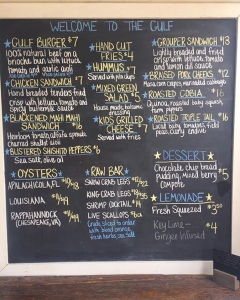 WELCOME TO THE GULF
GULF BURGER $7
100% natural beef on a
brioche bun with lettuce
tomato and garlic aioli
CHICKEN SANDWICH $7
Hand breaded tenders fried
crisp with lettuce, tomato and
spicy buttermilk sauce
BLACKENED MAHI MAHI
SANDWICH $16
Heirloom tomato, alfalfa sprouts
charred shallot aioli
BLISTERED SHISHITO PEPPERS $6
Sea salt, olive oil
OYSTERS
APALACHICOLA, FL
LOUISIANA
RAPPAHANNOCK
(CHESAPEAKE, VA)
HAND CUT
FRIES $4
HUMMUS $7
Served with pita chips
MIXED GREEN
SALAD $5
House made balsamic
KIDS GRILLED
CHEESE $7
Served with fries
RAW BAR
SNOW CRAB LEGS
KING CRAB LEGS
SHRIMP COCKTAIL
LIVE SCALLOPS
Crudo sliced to order
with blood orange,
fresh herbs, sea salt
GROUPER SANDWICH $13
Lightly breaded and fried
crisp with lettuce, tomato
and lemon dill sauce
BRAISED PORK CHEEKS $12
ROASTED COBIA $16
Quinoa, roasted baby squash,
ROASTED TRIPLE TAIL $16
DESSERT
Chocolate chip bread
pudding, mixed berry $5
compote
LEMONADE
Fresh Squeezed $3.00
Key Lime -
Ginger Infused $4